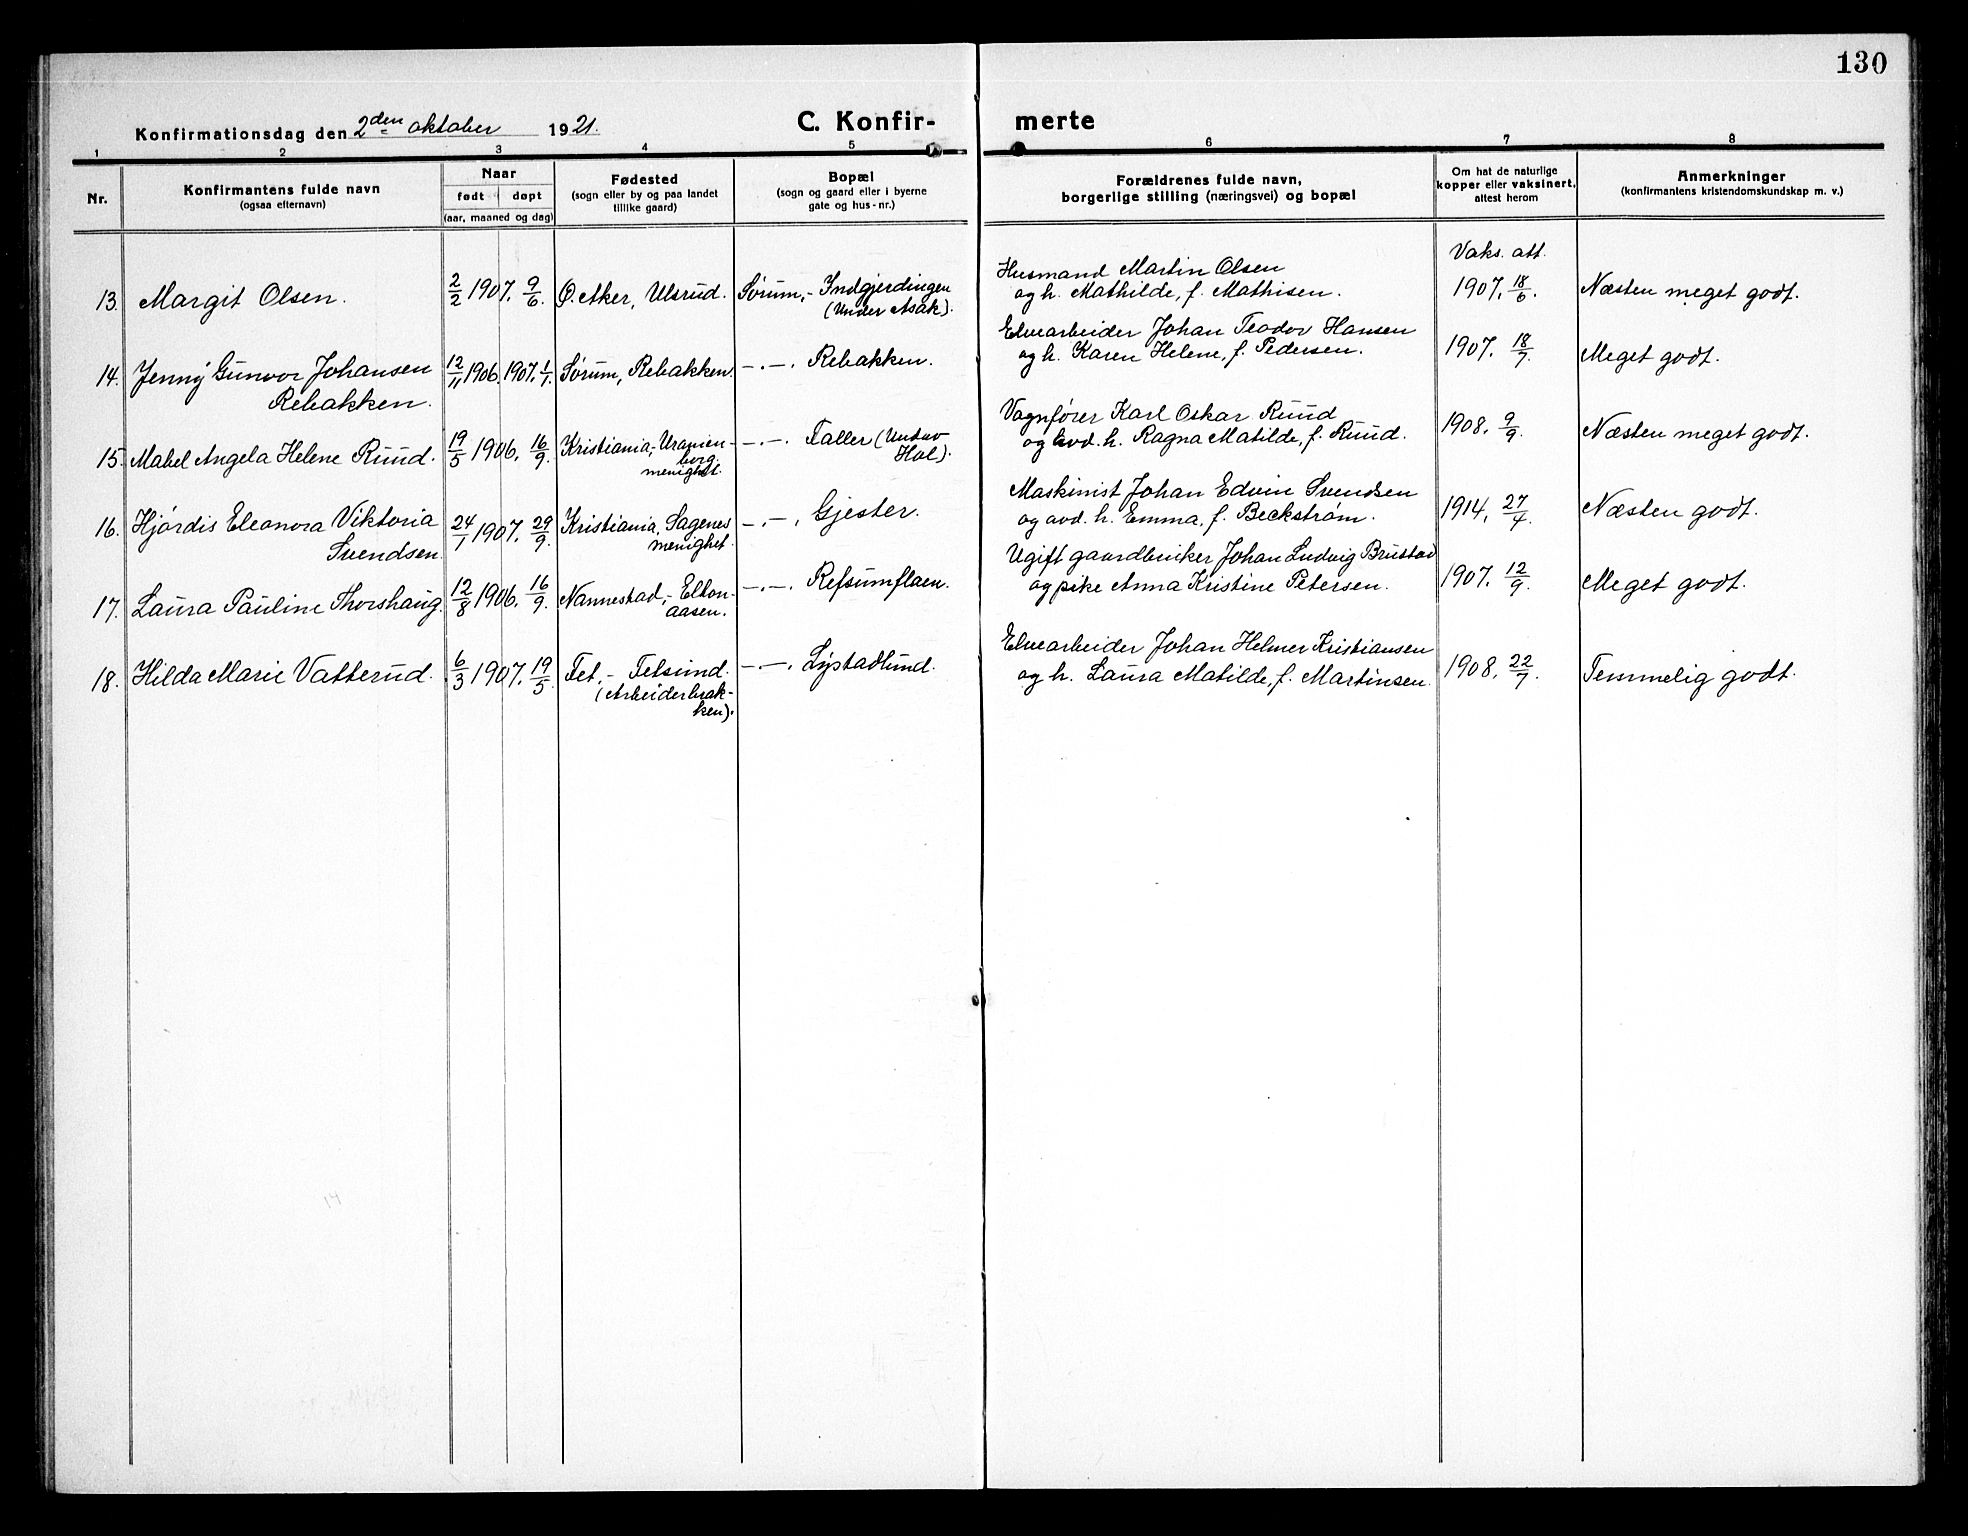 130
Konfirmationsdag den 2den oktober 1921.
C. Konfir-
merte
1 2 3 4 5 6 7 8
Nr.
Konfirmantens fulde navn
(ogsaa efternavn)
Naar
født døpt
(aar, maaned og dag)
Fødested
(sogn eller by og paa landet
tillike gaard)
Bopæl
(sogn og gaard eller i byerne
gate og hus-nr.)
Forældrenes fulde navn,
borgerlige stilling (næringsvei) og bopæl
Om hat de naturlige
kopper eller vaksinert,
attest herom
Anmerkninger
(konfirmantens kristendomskundskap m. v.)
13. Margit Olsen. 2/2 1907. 9/6. Ø. Aker, Ulsrud. Sørum,- Indgjerdingen
(Under Asak).
Husmand Martin Olsen
og h. Mathilde, f. Mathisen.
Vaks. att.
1907. 18/6. Næsten meget godt.
14. Jenny Gunvor Johansen
Rebakken.
12/11 1906. 1907. 1/1. Sørum, Rebakken. -.-. Rebakken.
Elvearbeider Johan Teodor Hansen
og h. Karen Helene, f. Pedersen.
1907. 18/7. Meget godt.
15. Mabel Angela Helene Ruud. 19/5 1906. 16/9. Kristiania,- Uranien-
borg.
menighet.
-.-. Faller (Under
Hol).
Vognfører Karl Oskar Ruud
og avd. h. Ragna Matilde, f. Ruud.
1908. 9/9. Næsten meget godt.
16. Hjørdis Eleonora Viktoria
Svendsen.
24/1 1907. 29/9. Kristiania, Sagenes
menighet.
-.-. Gjester.
Maskinist Johan Edvin Svendsen
og avd. h. Emma, f. Beckstrøm.
1914. 27/4. Næsten godt.
17. Laura Pauline Thorshaug. 12/8 1906. 16/9. Nannestad,- Elton-
aasen.
-.-. Refsumflaen.
Ugift gaardbruker Johan Ludvig Brustad
og pike Anna Kristine Petersen.
1907. 12/9. Meget godt.
18. Hilda Marie Vatterud. 6/3 1907. 19/5. Fet,- Fetsund.
(Arbeiderbrak-
ken).
-.-. Lystadlund.
Elvearbeider Johan Helmer Kristiansen
og h. Laura Matilde, f. Martinsen.
1908. 22/7. Temmelig godt.